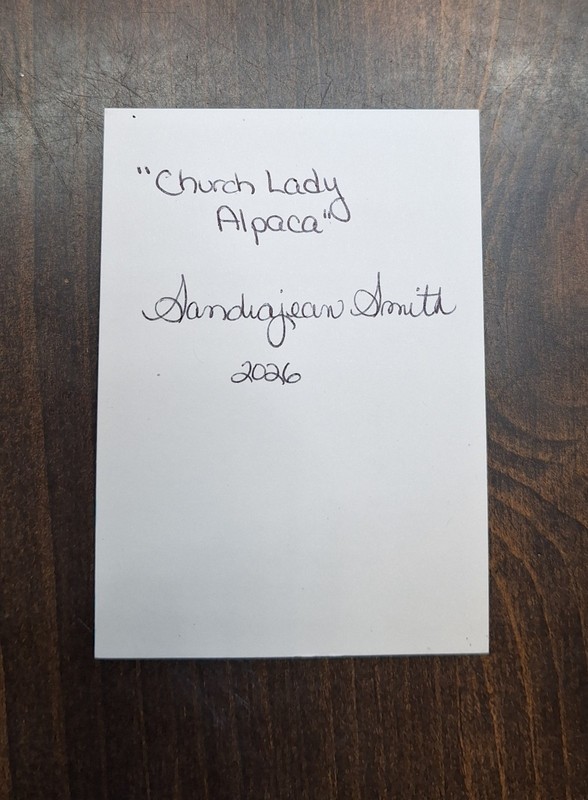 "Church Lady
Alpaca"
Sandrajean Smith
2026